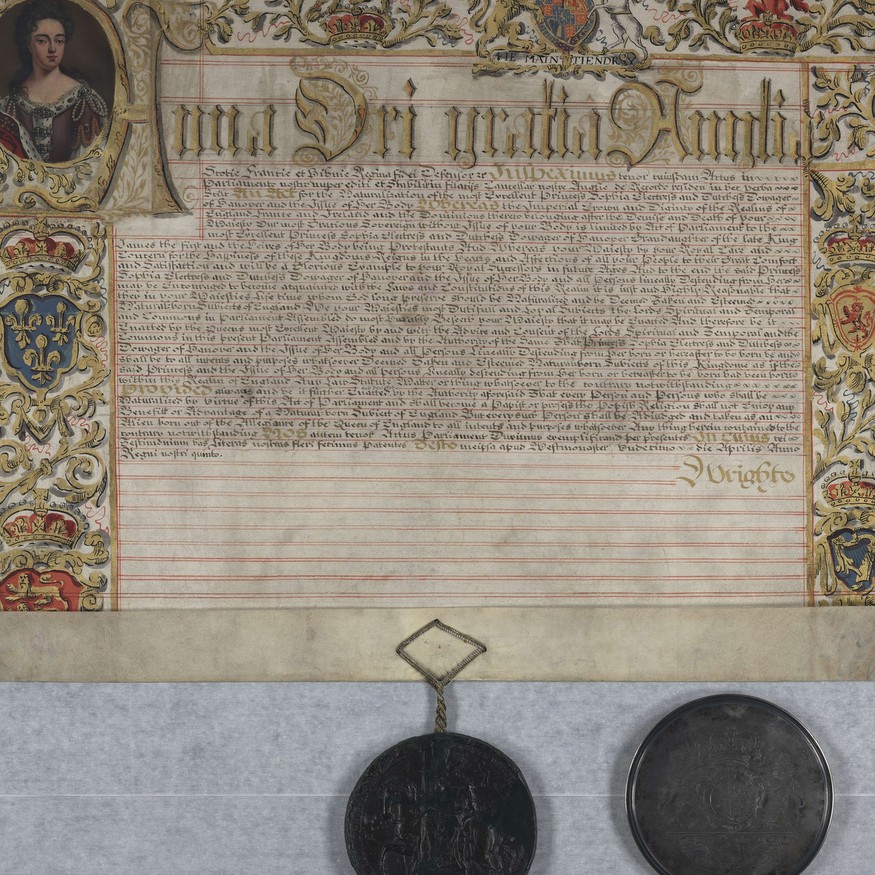 IE MAIN TIENDRAY
Anna Dei gratia Anglie
Scotie Francie et Hibnie Regina fidei Defensor &c Inspeximus Actus in
Parliamento nostro nuper edit et Stabilitu filaciis Cancellar nostre Anglie de Recordo residen in hec verba
An Act for the Naturalization of the most Excellent Princess Sophia Electress and Dutchess Dowager
of Hanover and the Issue of Her Body Whereas the Imperial Crown and Dignitie of the Realms of
England France and Ireland and the Dominions thereto belonging after the Demise and Death of your
Majesty Our most Gratious Sovereign without Issue of your Body is limited by Act of Parliament to the
most Excellent Princess Sophia Electress and Dutchess Dowager of Hanover Granddaughter of the late King
James the first and the Heirs of Her Body being Protestants And Whereas your Majesty by your Royal Care and
Concern for the Happiness of these Kingdoms Reigns in the hearts and Affections of all your People to their Great Comfort
and Satisfaction and will be a Glorious Example to your Royal Successors in future Ages And to the end the said Princess
Electress and Dutchess Dowager of Hanover and the Issue of Her Body and all Persons lineally Descending from Her
may be encouraged to become acquainted with the Laws and Constitutions of this Realm it is just and highly Reasonable that
they in your Majesties life time whom God long preserve should be Naturalized and be Deemed Taken and Esteemed
Natural born Subjects of England We your Majesties most Dutifull and Loyal Subjects the lords Spiritual and Temporal
and Commons in Parliament Assembled do most humbly beseech your Majesty that it may be Enacted And therefore be it
Enacted by the Queens most Excellent Majesty by and with the Advice and Consent of the Lords Spiritual and Temporal and the
Commons in this present Parliament Assembled and by the Authority of the same That the said Princess Sophia Electress and Dutchess
Dowager of Hanover and the Issue of Her Body and all Persons lineally Descending from Her born or hereafter to be born be and
shall be to all intents and purposes whatsoever Deemed Taken and Esteemed Natural born Subjects of this Kingdome as if the
said Princess and the Issue of Her Body and all persons lineally descending from Her born or hereafter to be born had been born
within this Realm of England Any Law Statute Matter or thing whatsoever to the contrary notwithstanding
Provided always and be it further Enacted by the Authority aforesaid That every Person and Persons who shall be
Naturalized by virtue of this Act of Parliament and shall become a Papist or profess the Popish Religion shall not Enjoy any
Benefitt or Advantage of a Natural born Subject of England But every such person shall be Adjudged and taken as an
Alien born out of the Allegiance of the Queen of England to all intents and purposes whatsoever Any thing herein contained to the
contrary notwithstanding Nos autem tenor Actus Parliament Duximus exemplificand per presentes In cuius rei
testimonium has literas nostras fieri fecimus Patentes Teste meipsa apud Westmonaster die Aprilis Anno
Regni nostri quinto.
Wrighte